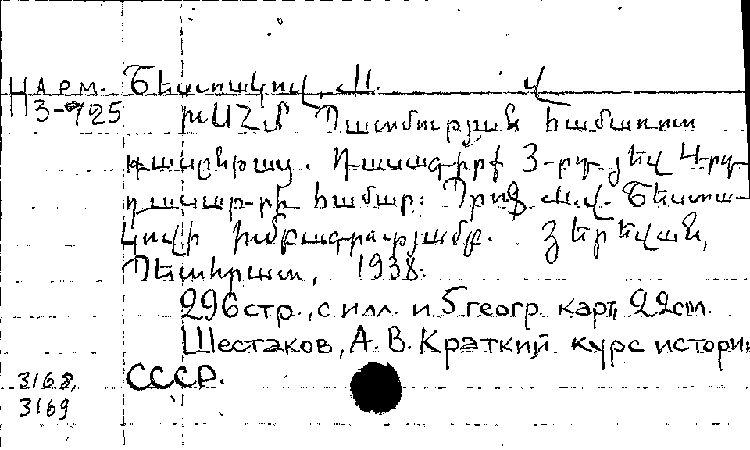 НАРМ. Շեստակով, Ա. Վ
3-925 ԽՍՀՄ Պատմության համառոտ
դասընթաց. Դասագիրք 3-րդ յեվ 4-րդ
դասար-րի համար: Պրոֆ. Ա. Վ. Շեստա-
կովի խմբագրությամբ. Յերեվան,
Պետհրատ, 1938.
296 стр., с илл. и 5 геогр. карт, 22 см.
Шестаков, А. В. Краткий курс истории
3168, СССР.
3169